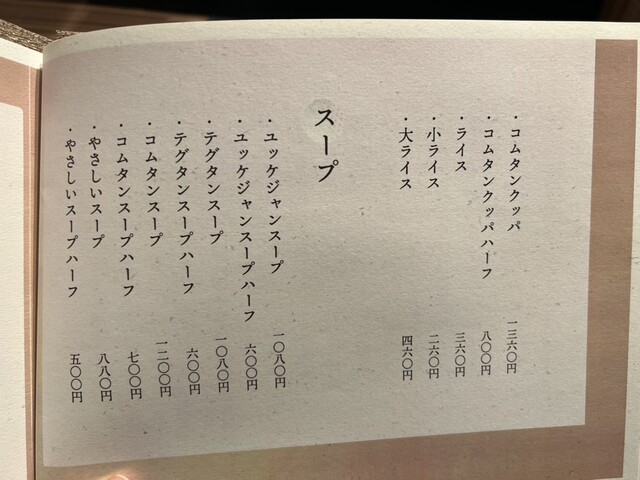 ・コムタンクッパ 一三六〇円
・コムタンクッパハーフ 八〇〇円
・ライス 三六〇円
・小ライス 二六〇円
・大ライス 四六〇円
スープ
・ユッケジャンスープ 一〇八〇円
・ユッケジャンスープハーフ 六〇〇円
・テグタンスープ 一〇八〇円
・テグタンスープハーフ 六〇〇円
・コムタンスープ 一二〇〇円
・コムタンスープハーフ 七〇〇円
・やさしいスープ 八八〇円
・やさしいスープハーフ 五〇〇円